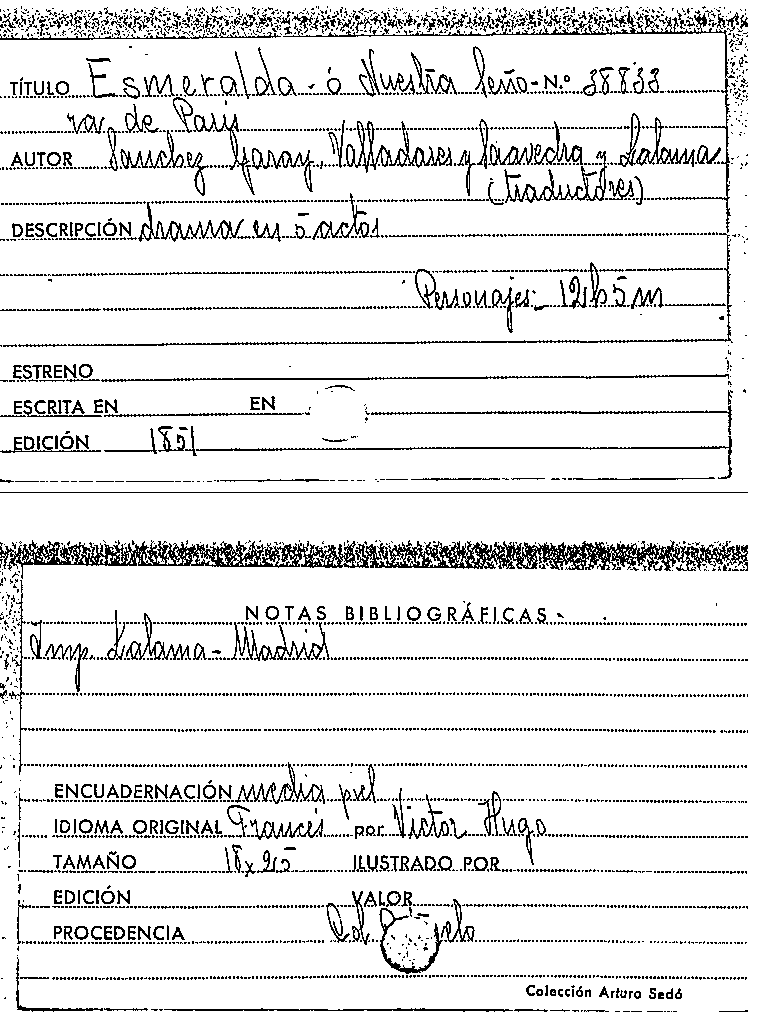 TÍTULO Esmeralda - ó Nuestra Seño- N.º 38833
ra de París
AUTOR Sanchez Garay, Valladares y Saavedra y Lalama
(traductores)
DESCRIPCIÓN drama en 5 actos
Personajes - 12 h 5 m
ESTRENO
ESCRITA EN EN
EDICIÓN 1851
NOTAS BIBLIOGRÁFICAS
Imp. Lalama - Madrid
ENCUADERNACIÓN media piel
IDIOMA ORIGINAL Francés por Victor Hugo
TAMAÑO 18 x 25 ILUSTRADO POR
EDICIÓN VALOR
PROCEDENCIA Col.
Colección Arturo Sedó